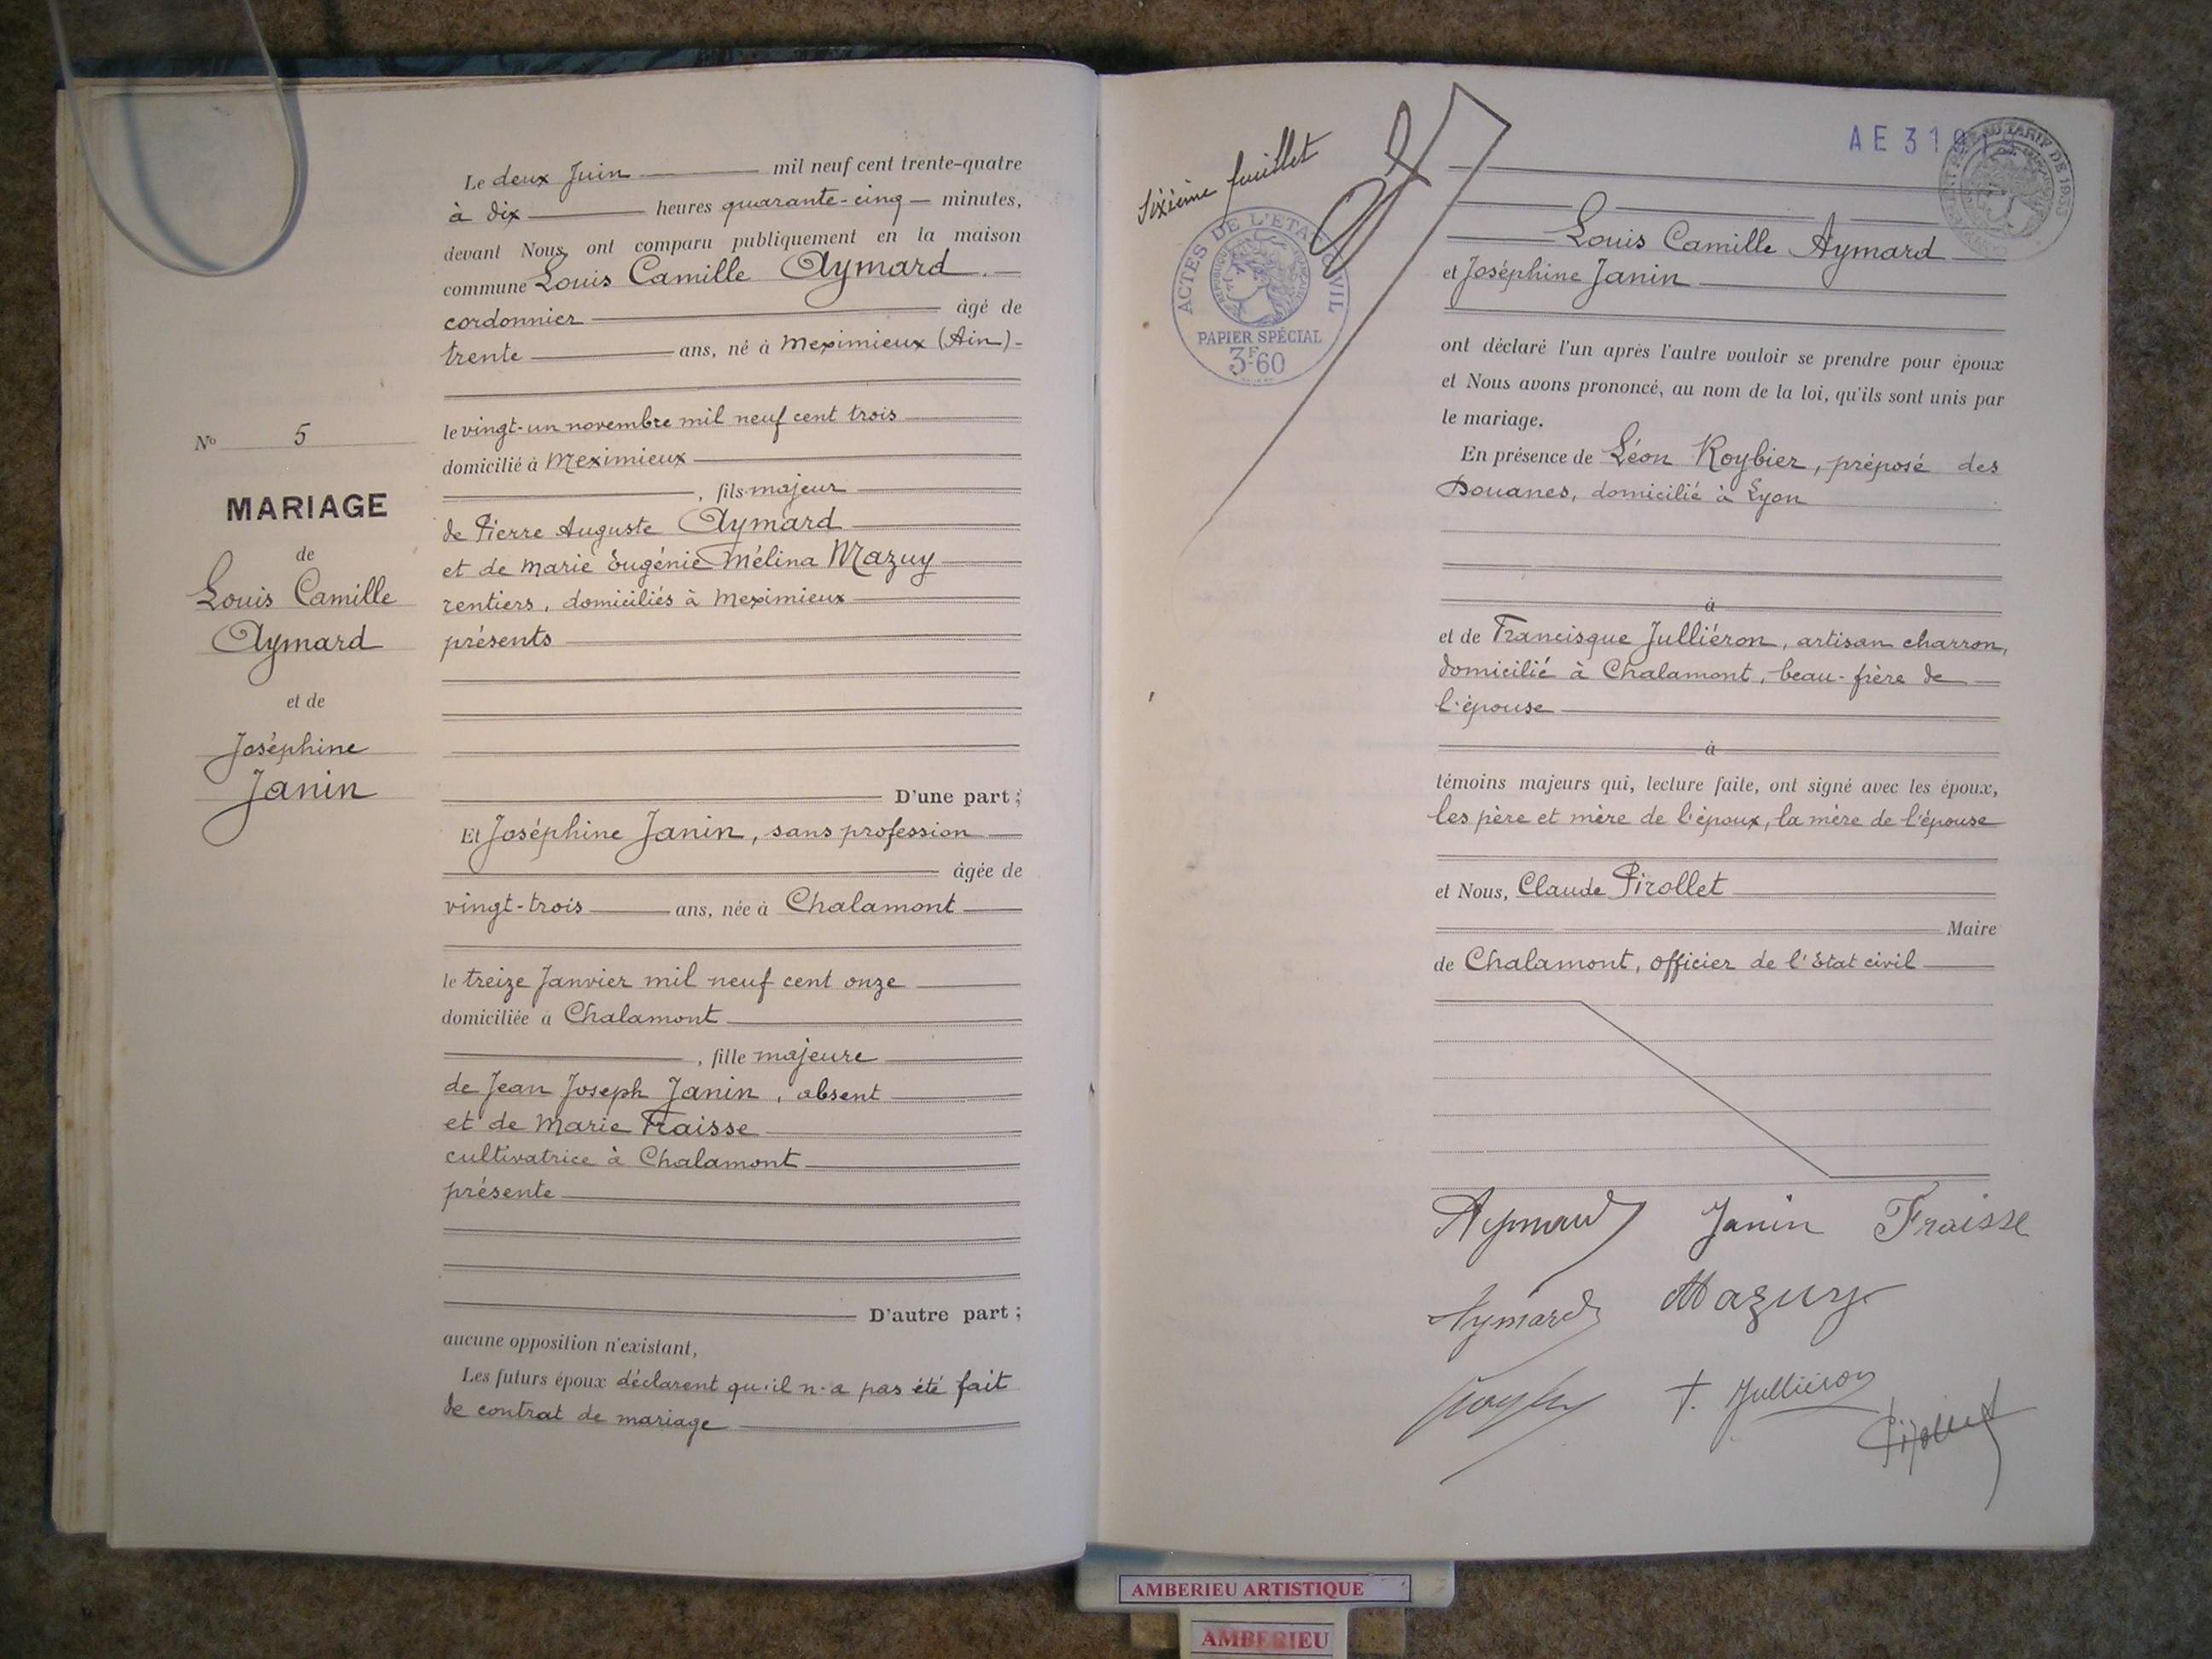 Le deux Juin mil neuf cent trente-quatre
à dix heures quarante-cinq minutes,
devant Nous, ont comparu publiquement en la maison
commune Louis Camille Aymard
cordonnier âgé de
trente ans, né à Meximieux (Ain)
le vingt-un novembre mil neuf cent trois
domicilié à Meximieux
, fils majeur
de Pierre Auguste Aymard
et de Marie Eugénie Mélina Mazuy
rentiers, domiciliés à Meximieux
présents
D'une part ;
Et Joséphine Janin, sans profession
âgée de
vingt-trois ans, née à Chalamont
le treize Janvier mil neuf cent onze
domiciliée à Chalamont
, fille majeure
de Jean Joseph Janin, absent
et de Marie Fraisse
cultivatrice à Chalamont
présente
D'autre part ;
aucune opposition n'existant,
Les futurs époux déclarent qu'il n'a pas été fait
de contrat de mariage
N° 5
MARIAGE
de
Louis Camille
Aymard
et de
Joséphine
Janin
Sixième feuillet
ACTES DE L'ETAT CIVIL
PAPIER SPÉCIAL
3F60
AE 310
TARIF DE 1933
Louis Camille Aymard
et Joséphine Janin
ont déclaré l'un après l'autre vouloir se prendre pour époux
et Nous avons prononcé, au nom de la loi, qu'ils sont unis par
le mariage.
En présence de Léon Roybier, préposé des
Douanes, domicilié à Lyon
à
et de Francisque Julliéron, artisan charron,
domicilié à Chalamont, beau-frère de
l'épouse
à
témoins majeurs qui, lecture faite, ont signé avec les époux,
les père et mère de l'époux, la mère de l'épouse
et Nous, Claude Pirollet
Maire
de Chalamont, officier de l'Etat civil
Aymard Janin Fraisse
Aymard Mazuy
F. Julliéron
Pirollet
AMBERIEU ARTISTIQUE
AMBERIEU